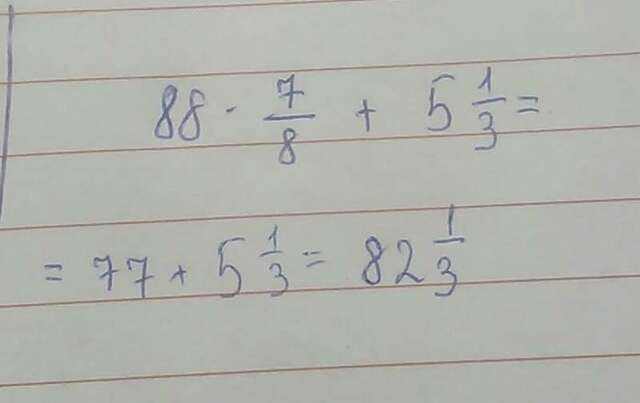 88 · 7/8 + 5 1/3 =
= 77 + 5 1/3 = 82 1/3